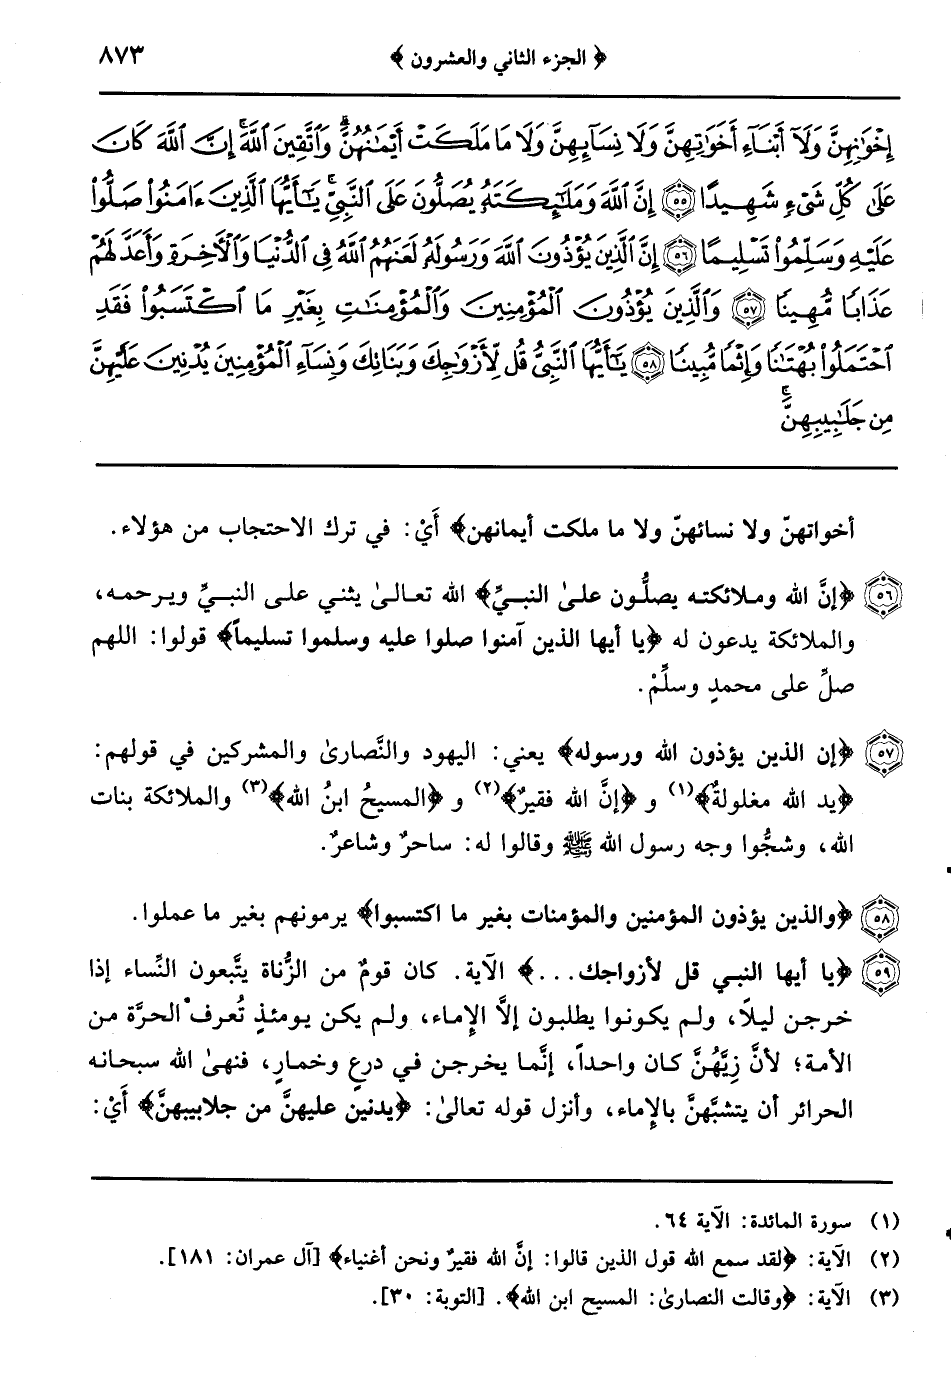 ﴿ الجزء الثاني والعشرون ﴾ ٨٧٣
إِخْوَٰنِهِنَّ وَلَآ أَبْنَآءِ أَخَوَٰتِهِنَّ وَلَا نِسَآئِهِنَّ وَلَا مَا مَلَكَتْ أَيْمَٰنُهُنَّ ۗ وَٱتَّقِينَ ٱللَّهَ ۚ إِنَّ ٱللَّهَ كَانَ
عَلَىٰ كُلِّ شَىْءٍ شَهِيدًا ﴿٥٥﴾ إِنَّ ٱللَّهَ وَمَلَٰٓئِكَتَهُۥ يُصَلُّونَ عَلَى ٱلنَّبِىِّ ۚ يَٰٓأَيُّهَا ٱلَّذِينَ ءَامَنُوا۟ صَلُّوا۟
عَلَيْهِ وَسَلِّمُوا۟ تَسْلِيمًا ﴿٥٦﴾ إِنَّ ٱلَّذِينَ يُؤْذُونَ ٱللَّهَ وَرَسُولَهُۥ لَعَنَهُمُ ٱللَّهُ فِى ٱلدُّنْيَا وَٱلْءَاخِرَةِ وَأَعَدَّ لَهُمْ
عَذَابًا مُّهِينًا ﴿٥٧﴾ وَٱلَّذِينَ يُؤْذُونَ ٱلْمُؤْمِنِينَ وَٱلْمُؤْمِنَٰتِ بِغَيْرِ مَا ٱكْتَسَبُوا۟ فَقَدِ
ٱحْتَمَلُوا۟ بُهْتَٰنًا وَإِثْمًا مُّبِينًا ﴿٥٨﴾ يَٰٓأَيُّهَا ٱلنَّبِىُّ قُل لِّأَزْوَٰجِكَ وَبَنَاتِكَ وَنِسَآءِ ٱلْمُؤْمِنِينَ يُدْنِينَ عَلَيْهِنَّ
مِن جَلَٰبِيبِهِنَّ ۚ
أخواتهنّ ولا نسائهنّ ولا ما ملكت أيمانهن﴾ أَيْ: في ترك الاحتجاب من هؤلاء.
﴿٥٦﴾ ﴿إنَّ الله وملائكته يصلُّون علىٰ النبيِّ﴾ الله تعالىٰ يثني على النبيِّ ويرحمه،
والملائكة يدعون له ﴿يا أيها الذين آمنوا صلوا عليه وسلموا تسليماً﴾ قولوا: اللهم
صلِّ على محمدٍ وسلِّمْ.
﴿٥٧﴾ ﴿إن الذين يؤذون الله ورسوله﴾ يعني: اليهود والنَّصارىٰ والمشركين في قولهم:
﴿يد الله مغلولةٌ﴾(١) و ﴿إنَّ الله فقيرٌ﴾(٢) و ﴿المسيحُ ابنُ الله﴾(٣) والملائكة بنات
الله، وشجُّوا وجه رسول الله ﷺ وقالوا له: ساحرٌ وشاعرٌ.
﴿٥٨﴾ ﴿والذين يؤذون المؤمنين والمؤمنات بغير ما اكتسبوا﴾ يرمونهم بغير ما عملوا.
﴿٥٩﴾ ﴿يا أيها النبي قل لأزواجك...﴾ الآية. كان قومٌ من الزُّناة يتَّبعون النِّساء إذا
خرجن ليلًا، ولم يكونوا يطلبون إلَّا الإِماء، ولم يكن يومئذٍ تُعرف الحرَّة من
الأمة؛ لأنَّ زِيَّهُنَّ كان واحداً، إنَّما يخرجن في درعٍ وخمارٍ، فنهىٰ الله سبحانه
الحرائر أن يتشبَّهنَّ بالإِماء، وأنزل قوله تعالىٰ: ﴿يدنين عليهنَّ من جلابيبهنَّ﴾ أَيْ:
(١) سورة المائدة: الآية ٦٤.
(٢) الآية: ﴿لقد سمع الله قول الذين قالوا: إنَّ الله فقيرٌ ونحن أغنياء﴾ [آل عمران: ١٨١].
(٣) الآية: ﴿وقالت النصارىٰ: المسيح ابن الله﴾. [التوبة: ٣٠].